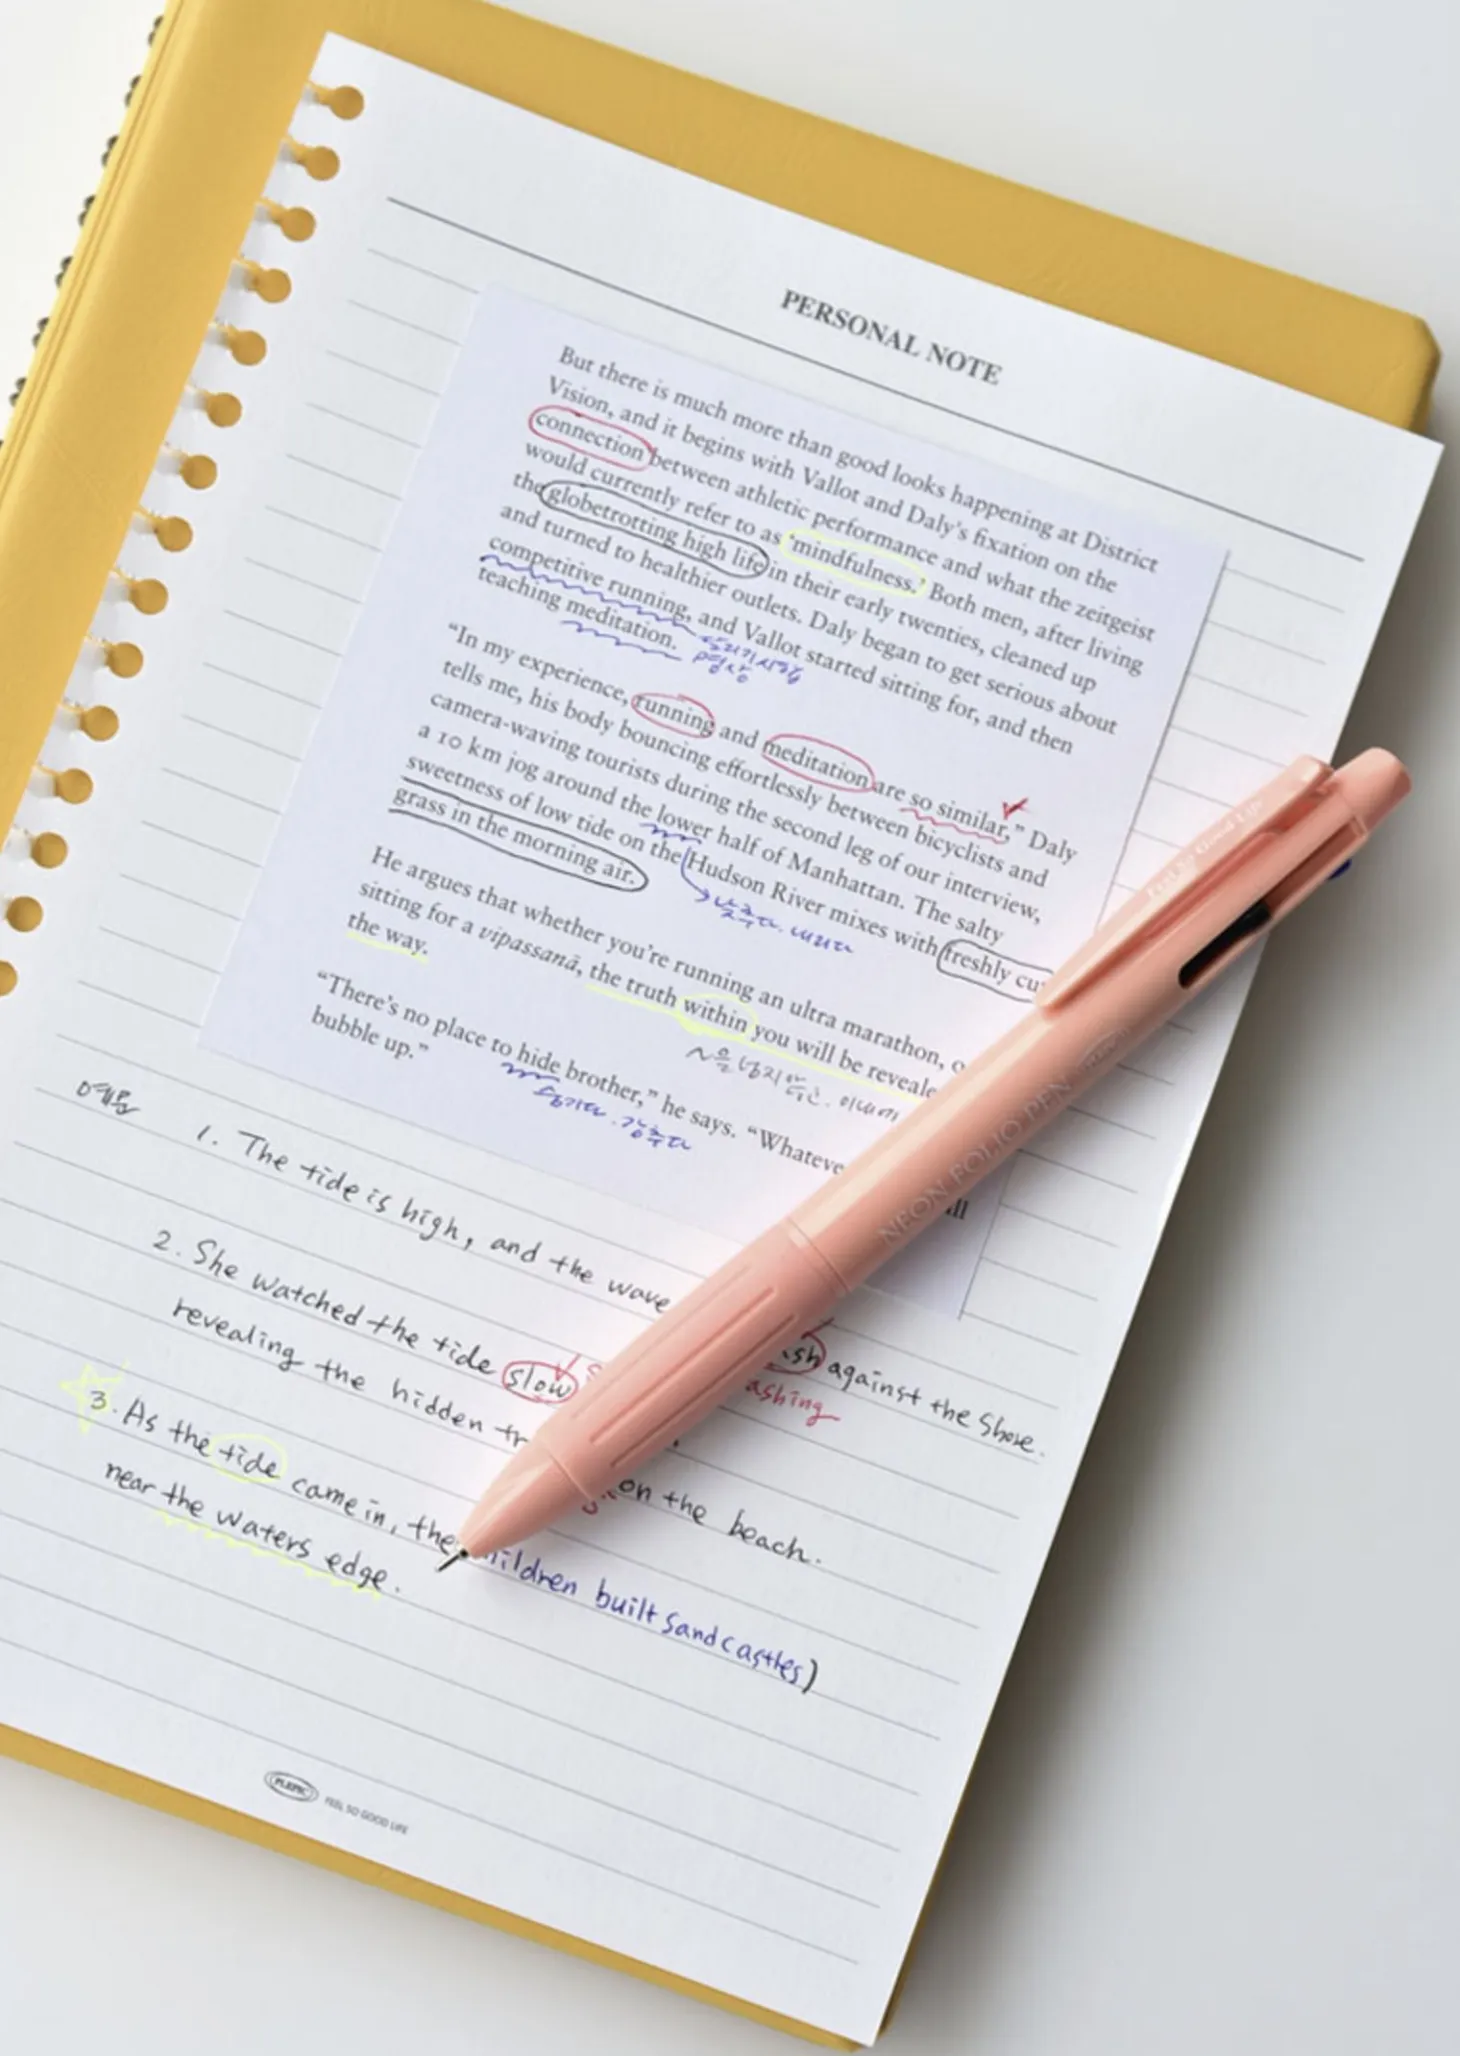 PERSONAL NOTE
But there is much more than good looks happening at District
Vision, and it begins with Vallot and Daly's fixation on the
connection between athletic performance and what the zeitgeist
would currently refer to as 'mindfulness.' Both men, after living
the globetrotting high life in their early twenties, cleaned up
and turned to healthier outlets. Daly began to get serious about
competitive running, and Vallot started sitting for, and then
teaching meditation.
달리기시합
명상
"In my experience, running and meditation are so similar," Daly
tells me, his body bouncing effortlessly between bicyclists and
camera-waving tourists during the second leg of our interview,
a 10 km jog around the lower half of Manhattan. The salty
sweetness of low tide on the Hudson River mixes with freshly cu
grass in the morning air.
낮추다. 내리다
He argues that whether you're running an ultra marathon, o
sitting for a vipassanā, the truth within you will be reveale
the way.
~을 넘지 않는. 이내에
"There's no place to hide brother," he says. "Whateve
ill
bubble up."
숨기다. 감추다
예문
1. The tide is high, and the wave sh against the Shore.
ashing
2. She watched the tide slow
revealing the hidden tr on the beach.
3. As the tide came in, the hildren built sandcastles)
near the waters edge.
PLEPIC FEEL SO GOOD LIFE
Feel So Good Life
NEON FOLIO PEN